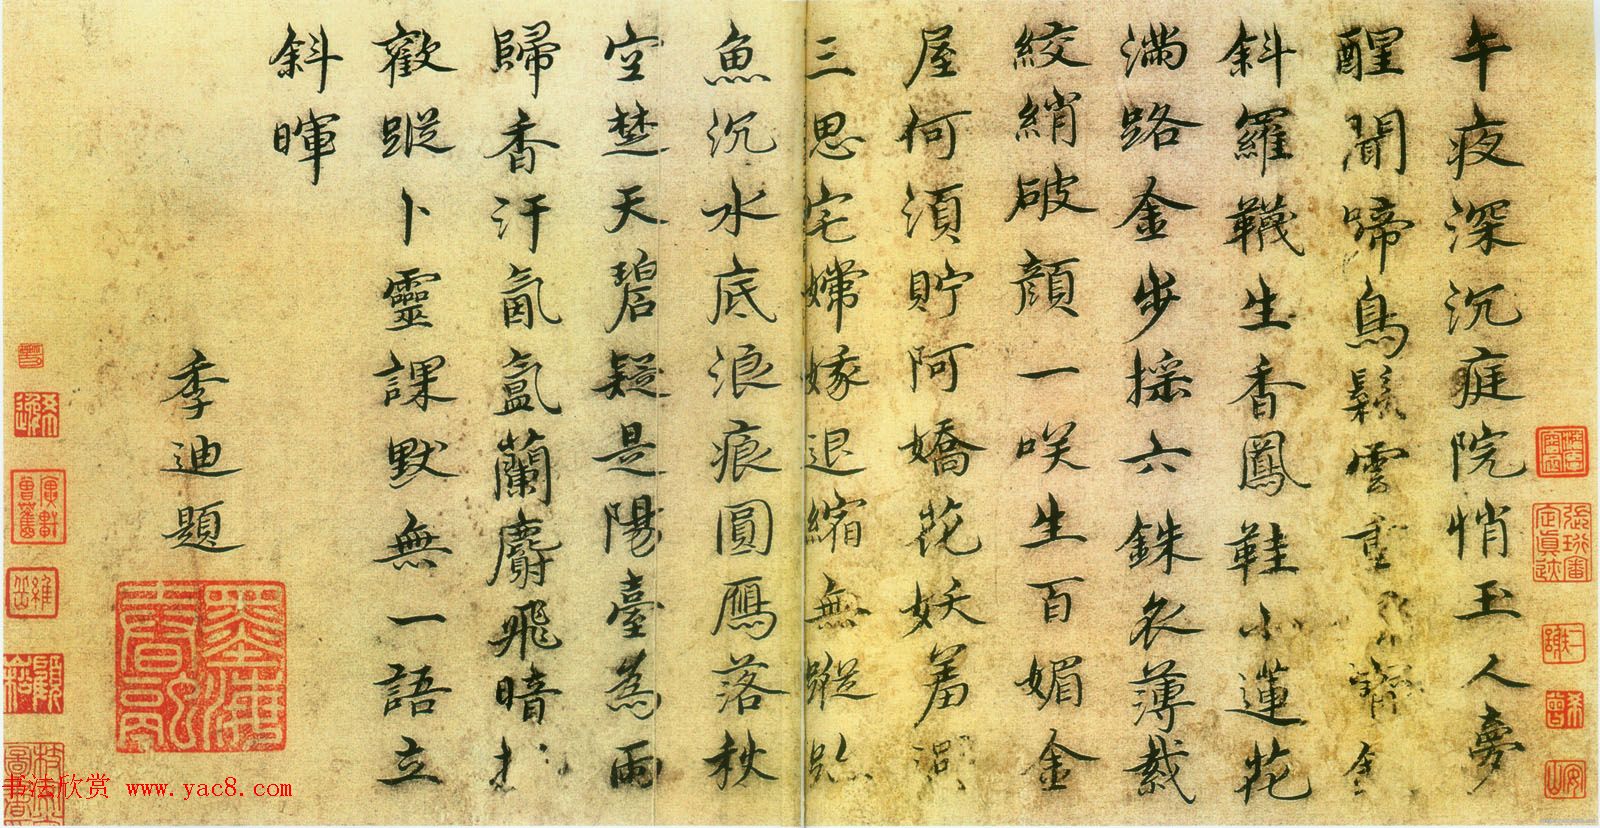 午夜深沉庭院悄玉人夢
醒聞啼鳥鬆雲重
斜羅韈生香鳳鞋小蓮花
滿路金步採六銖衣薄裁
絞綃破顔一咲生百媚金
屋何須貯阿嬌花妖羞
三思宅嫦娥退縮無蹤
魚沉水底浪痕圓鴈落秋
空楚天碧疑是陽臺為雨
歸香汗氤氳蘭麝飛暗
歡蹤卜靈課默無一語立
斜暉
季迪題
书法欣赏 www.yac8.com